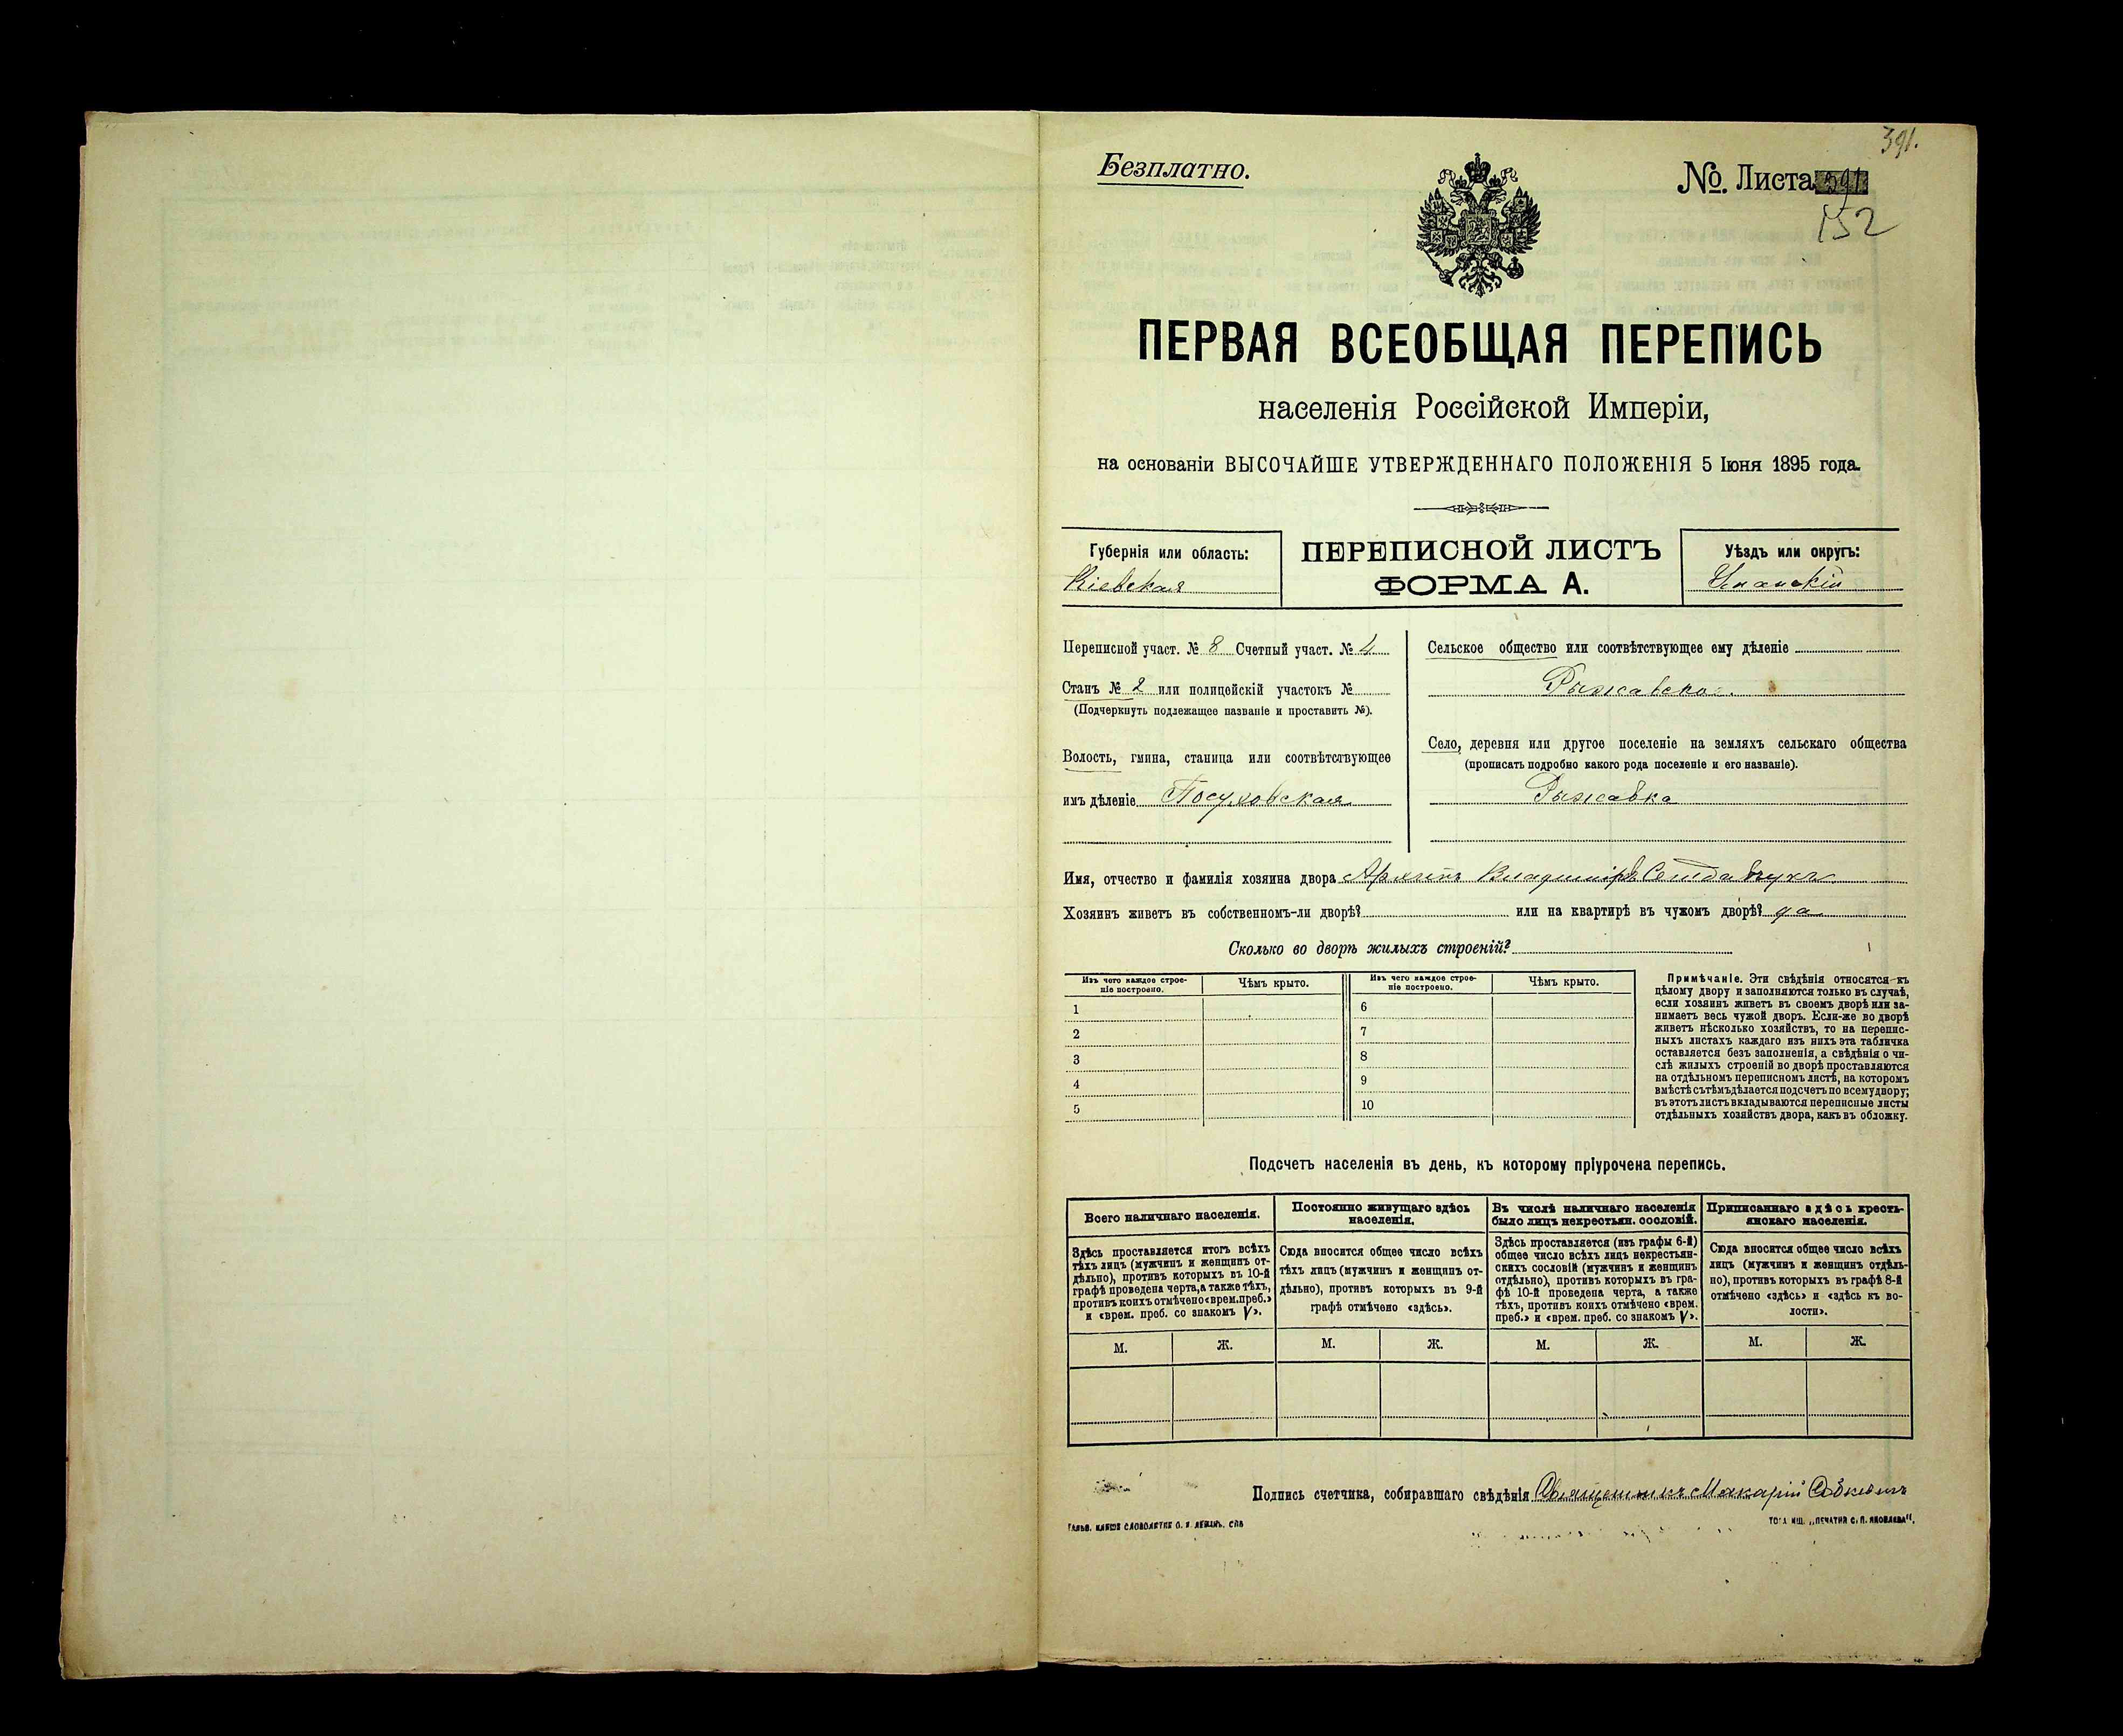 391.
Безплатно.
№. Листа 391
152
ПЕРВАЯ ВСЕОБЩАЯ ПЕРЕПИСЬ
населенія Россійской Имперіи,
на основаніи ВЫСОЧАЙШЕ УТВЕРЖДЕННАГО ПОЛОЖЕНІЯ 5 Іюня 1895 года.
Губернія или область:
Кіевская
ПЕРЕПИСНОЙ ЛИСТЪ
ФОРМА А.
Уѣздъ или округъ:
Уманскій
Переписной участ. № 8 Счетный участ. № 4
Станъ № 2 или полицейскій участокъ №
(Подчеркнуть подлежащее названіе и проставить №).
Волость, гмина, станица или соотвѣтствующее
имъ дѣленіе Посуховская
Сельское общество или соотвѣтствующее ему дѣленіе
Рыжавское.
Село, деревня или другое поселеніе на земляхъ сельскаго общества
(прописать подробно какого рода поселеніе и его названіе).
Рыжавка
Имя, отчество и фамилія хозяина двора Архипъ Владиміровъ
Хозяинъ живетъ въ собственномъ-ли дворѣ? или на квартирѣ въ чужомъ дворѣ? да
Сколько во дворѣ жилыхъ строеній?
Изъ чего каждое строе-
ніе построено.
Чѣмъ крыто.
Изъ чего каждое строе-
ніе построено.
Чѣмъ крыто.
1
2
3
4
5
6
7
8
9
10
Примѣчаніе. Эти свѣдѣнія относятся къ
цѣлому двору и заполняются только въ случаѣ,
если хозяинъ живетъ въ своемъ дворѣ или за-
нимаетъ весь чужой дворъ. Если-же во дворѣ
живетъ нѣсколько хозяйствъ, то на перепис-
ныхъ листахъ каждаго изъ нихъ эта табличка
оставляется безъ заполненія, а свѣдѣнія о чи-
слѣ жилыхъ строеній во дворѣ проставляются
на отдѣльномъ переписномъ листѣ, на которомъ
вмѣстѣ съ тѣмъ дѣлается подсчетъ по всему двору;
въ этотъ листъ вкладываются переписные листы
отдѣльныхъ хозяйствъ двора, какъ въ обложку.
Подсчетъ населенія въ день, къ которому пріурочена перепись.
Всего наличнаго населенія.
Здѣсь проставляется итогъ всѣхъ
тѣхъ лицъ (мужчинъ и женщинъ от-
дѣльно), противъ которыхъ въ 10-й
графѣ проведена черта, а также тѣхъ,
противъ коихъ отмѣчено «врем. преб.»
и «врем. преб. со знакомъ V».
М. Ж.
Постоянно живущаго здѣсь
населенія.
Сюда вносится общее число всѣхъ
тѣхъ лицъ (мужчинъ и женщинъ от-
дѣльно), противъ которыхъ въ 9-й
графѣ отмѣчено «здѣсь».
М. Ж.
Въ числѣ наличнаго населенія
было лицъ некрестьян. сословій.
Здѣсь проставляется (изъ графы 6-й)
общее число всѣхъ лицъ некрестьян-
скихъ сословій (мужчинъ и женщинъ
отдѣльно), противъ которыхъ въ гра-
фѣ 10-й проведена черта, а также
тѣхъ, противъ коихъ отмѣчено «врем.
преб.» и «врем. преб. со знакомъ V».
М. Ж.
Приписаннаго здѣсь кресть-
янскаго населенія.
Сюда вносится общее число всѣхъ
лицъ (мужчинъ и женщинъ отдѣль-
но), противъ которыхъ въ графѣ 8-й
отмѣчено «здѣсь» и «здѣсь къ во-
лости».
М. Ж.
Подпись счетчика, собиравшаго свѣдѣнія Священникъ Макарій